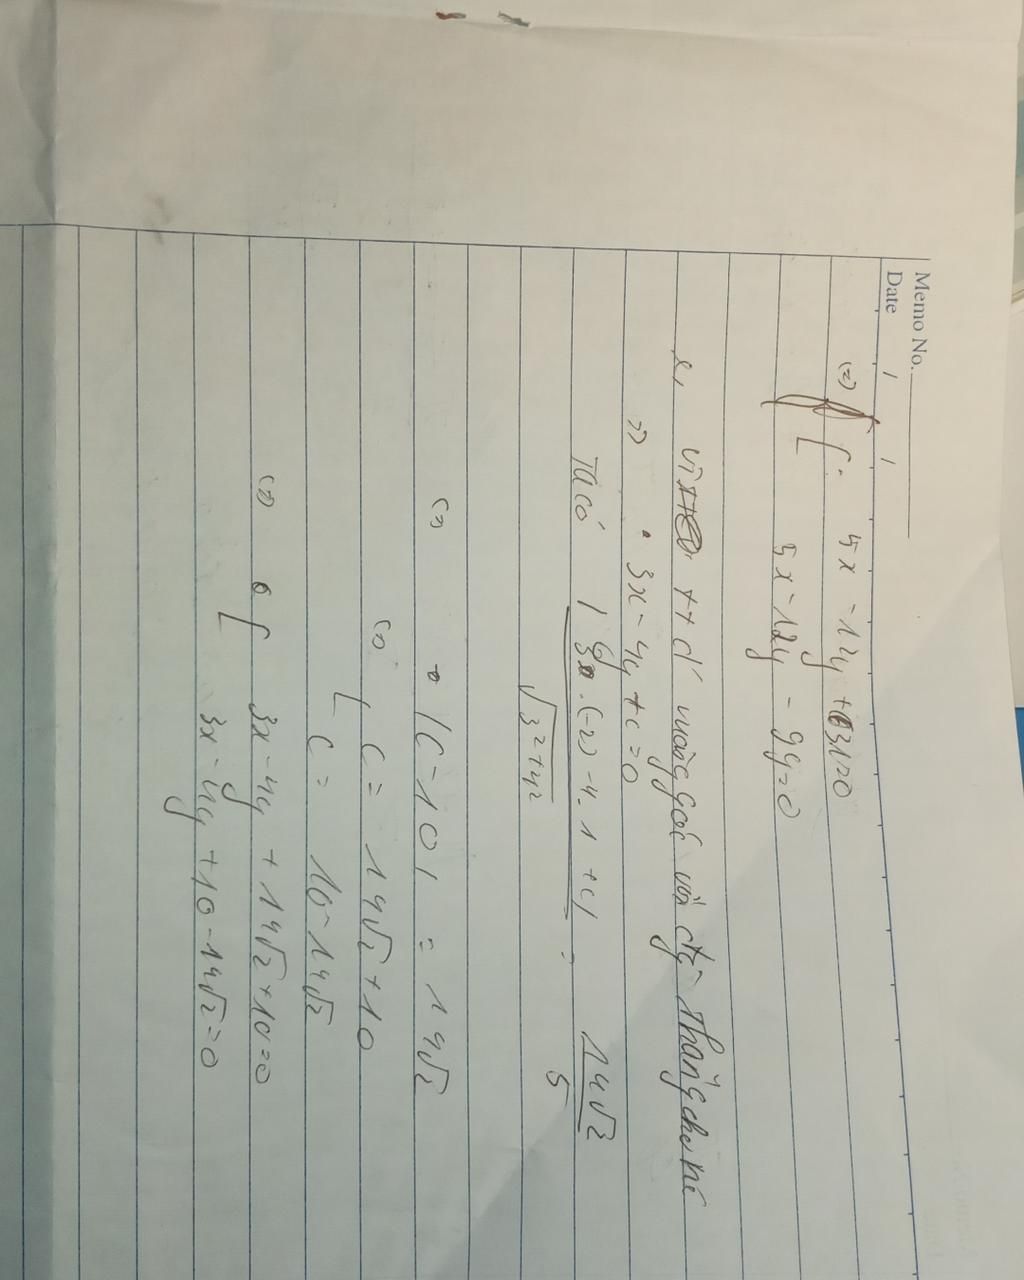 Memo No.
Date / /
(=) [ 5x - 12y + 31=0
5x - 12y - 99=0
vì tt d' vuông góc với đg thẳng
=> 3x - 4y + c = 0
Ta có |3.(-2) - 4.1 + c| / √3²+4² = 14√2 / 5
(=) |c - 10| = 14√2
(=) [ c = 14√2 + 10
c = 10 - 14√2
(=) [ 3x - 4y + 14√2 + 10=0
3x - 4y + 10 - 14√2 = 0